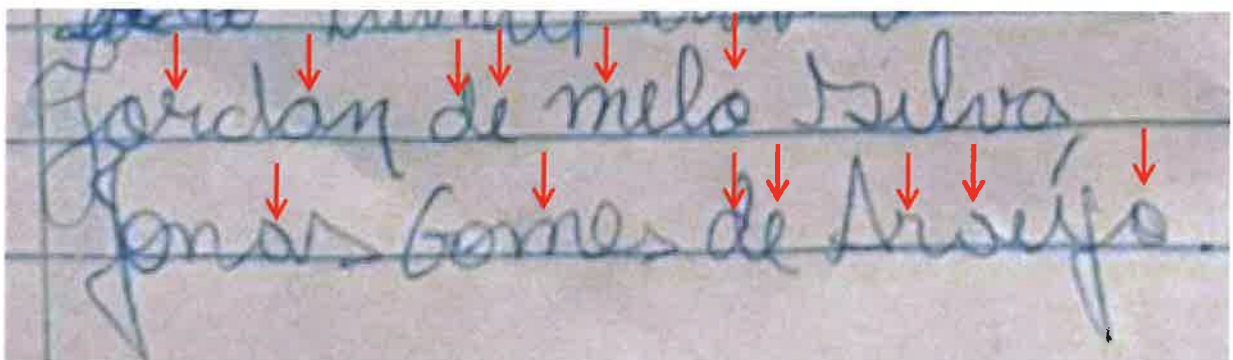 Jordan de melo Silva
Jonas Gomes de Araújo.